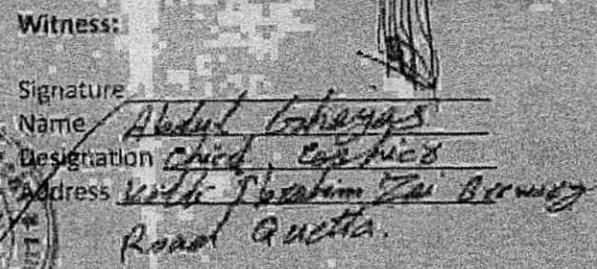 Witness:
Signature
Name Abdul Ghayas
Designation Chief Cashier
Address Killi Ibrahim Zai Brewery
Road Quetta.